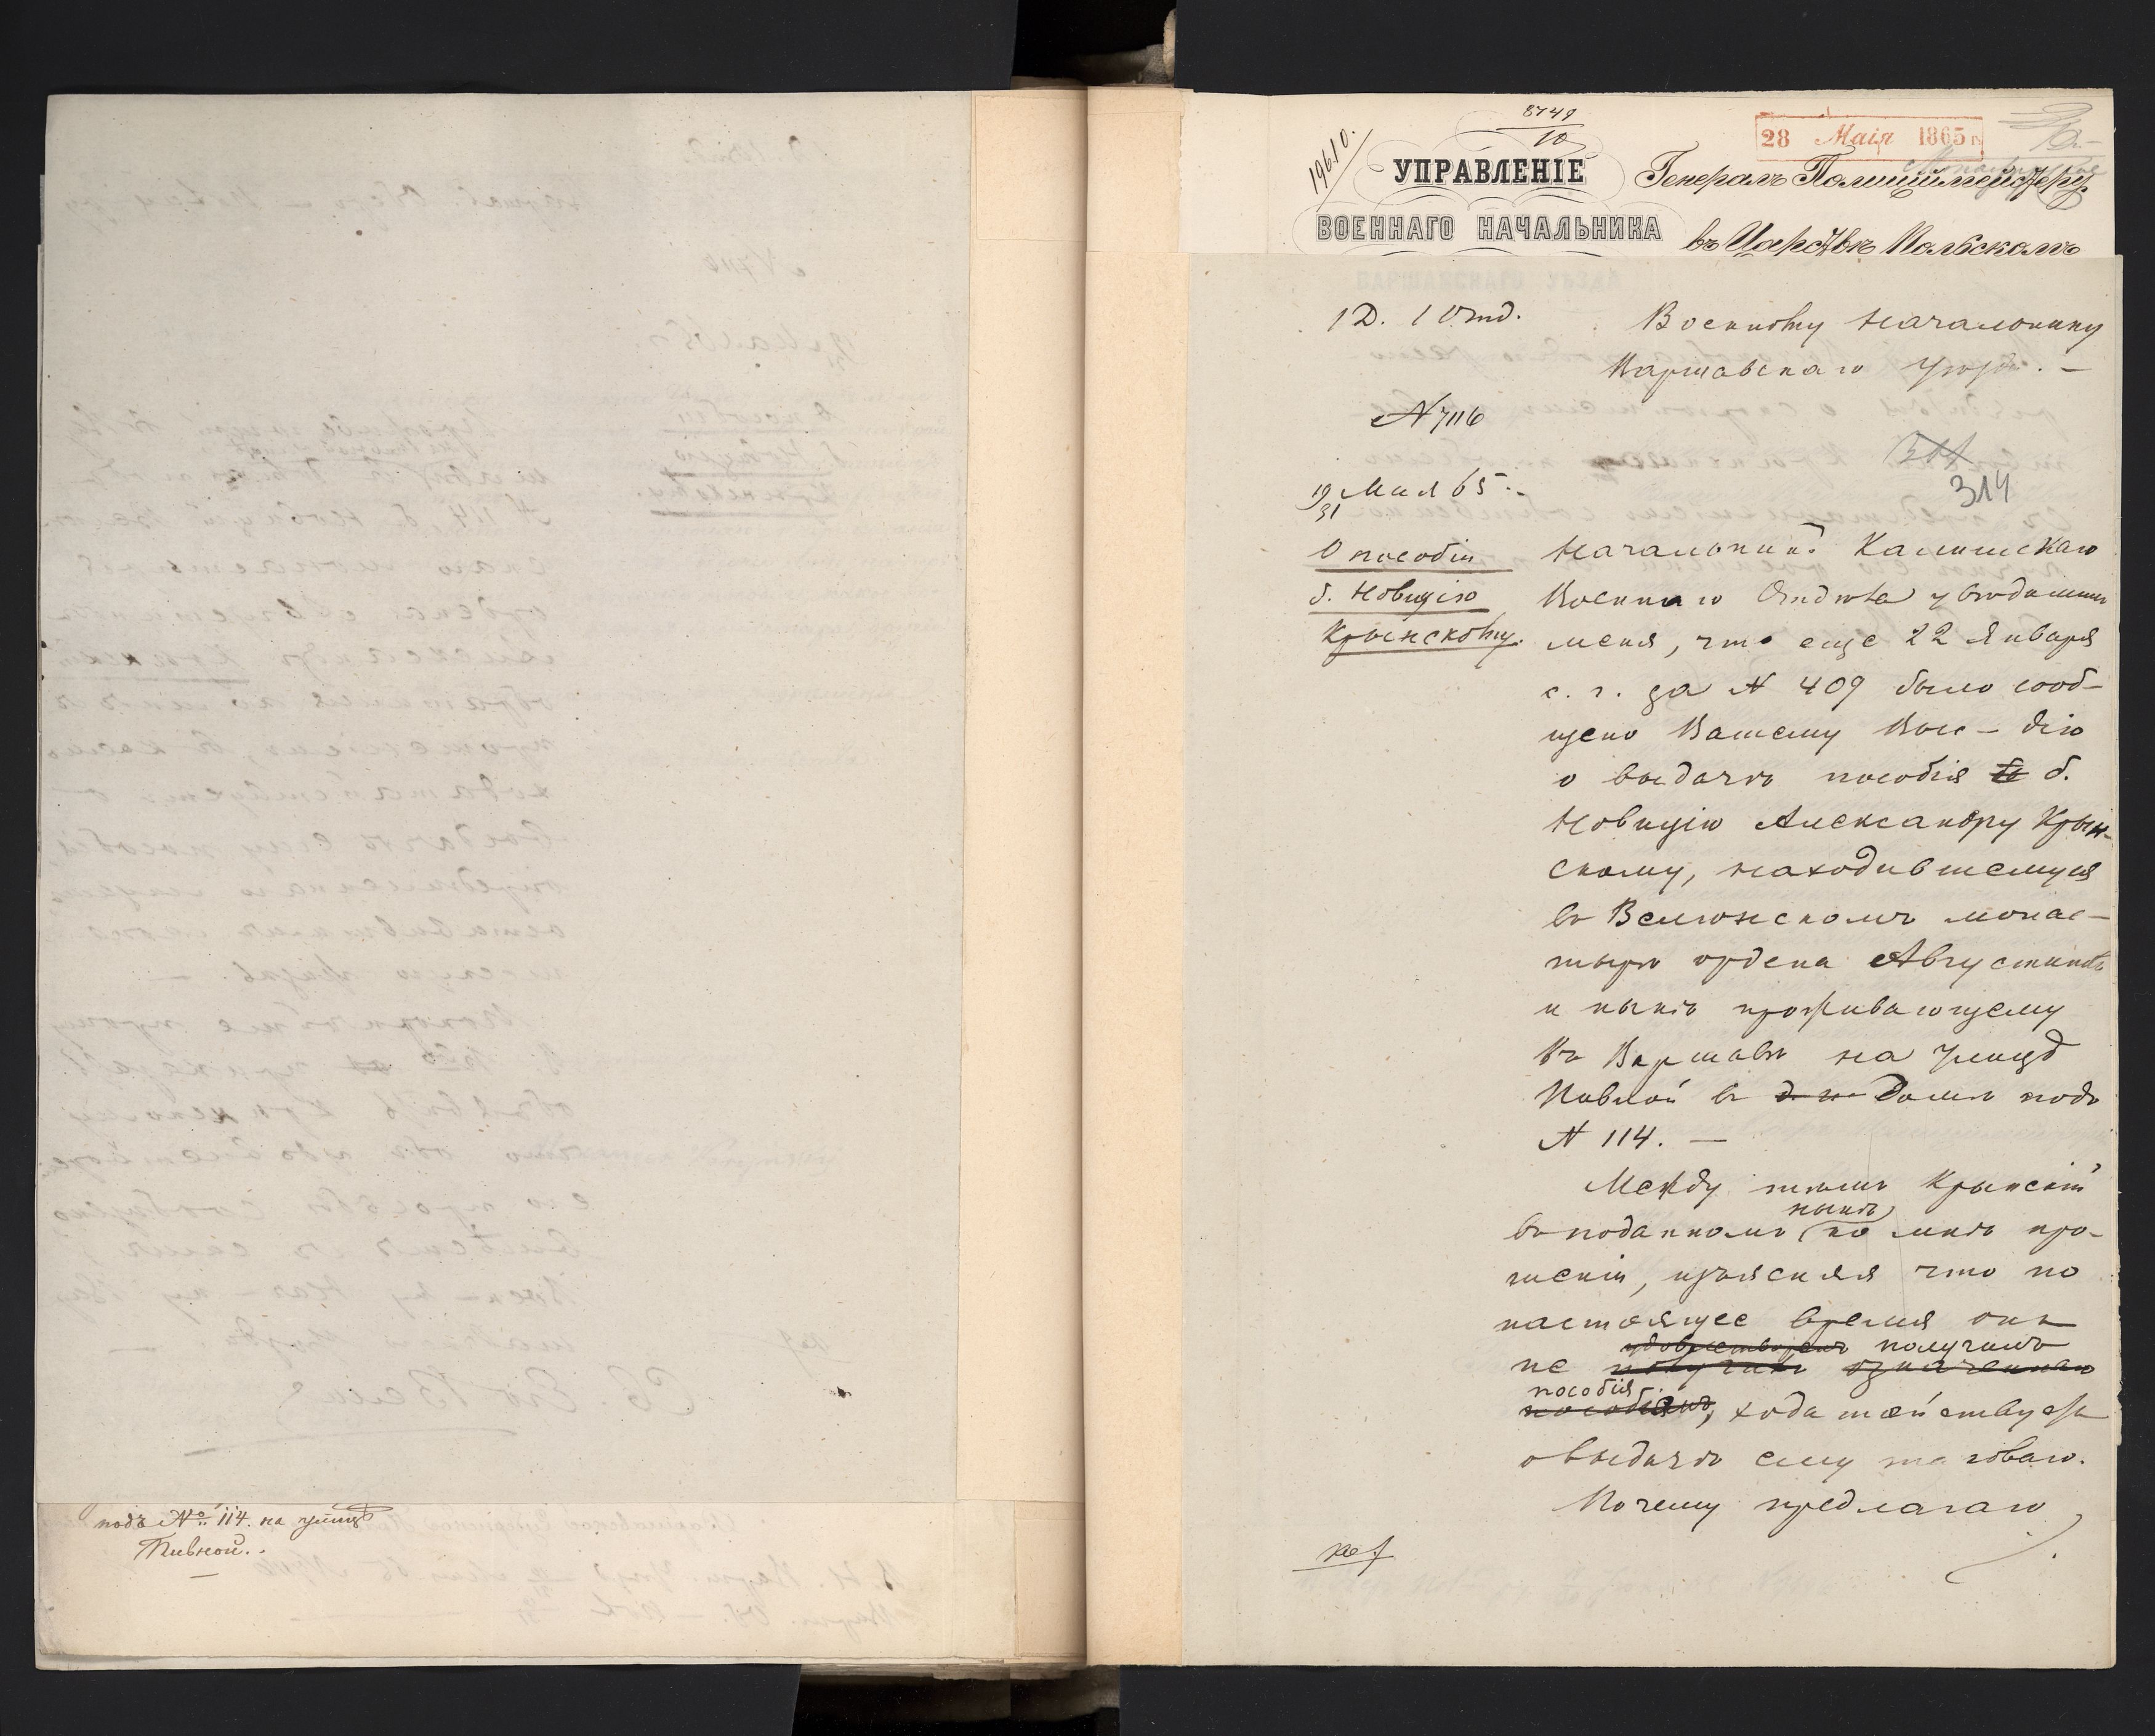 подъ № 114. на улицѣ
Пивной.
8749
10
19610.
28 Маія 1865 г.
УПРАВЛЕНІЕ
ВОЕННАГО НАЧАЛЬНИКА
Генералъ Полиціймейстеру
въ Царствѣ Польскомъ
1 Д. 1 Отд.
Военному Начальнику
Варшавскаго Уѣзда. —
N 7116
314
19/31 Мая 65.
О пособіи
б. Новицію
Крынскому.
Начальникъ Калишскаго
Военнаго Отдѣла увѣдомилъ
меня, что еще 22 Января
с. г. за N 409 было сооб-
щено Вашему Выс-дію
о выдачѣ пособія б.
Новицію Александру Крын-
скому, находившемуся
въ Велюнскомъ монас-
тырѣ ордена Августиновъ
и нынѣ проживающему
въ Варшавѣ на улицѣ
Пивной въ домѣ подъ
N 114. —
Между тѣмъ Крынскій
нынѣ
въ поданномъ ко мнѣ про-
шеніи, изъясняя что по
настоящее время онъ
удовлетворенъ получилъ
не получилъ означеннаго
пособія
пособіемъ, ходатайствуетъ
о выдачѣ ему таковаго.
Почему предлагаю